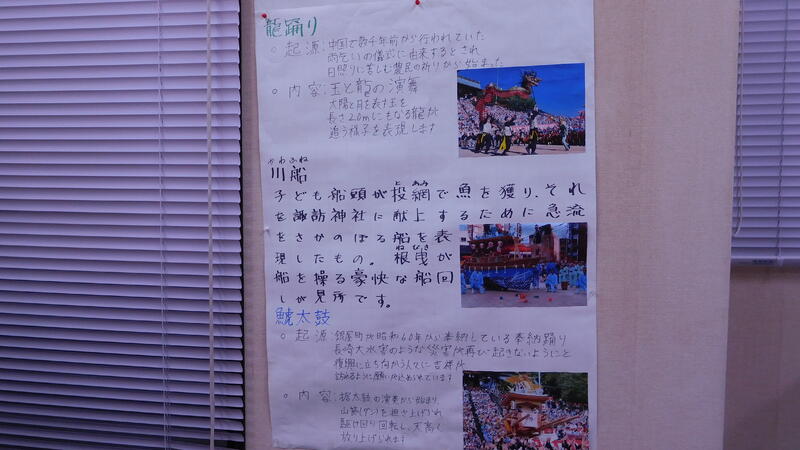 龍踊り
○ 起源:中国で数千年前から行われていた
雨乞いの儀式に由来するとされ
日照りに苦しむ農民の祈りから始まった
○ 内容:玉と龍の演舞
太陽と月を表す玉を
長さ20mにもなる龍が
追う様子を表現します
かわふね
川船
と あみ
子ども船頭が投網で魚を獲り、それ
を諏訪神社に献上するために急流
をさかのぼる船を表
ねびき
現したもの。根曳が
船を操る豪快な船回
しが見所です。
鯱太鼓
○ 起源:銀屋町が昭和60年から奉納している奉納踊り
長崎大水害のような災害が再び起きないようにと
復興に立ち向かう人々に吉祥が
訪れるように願いが込められています
○ 内容:
太鼓の演奏から始まり
山飾(ダシ)を担ぎ上げられ
駆け回り回転し、天高く
放り上げられます